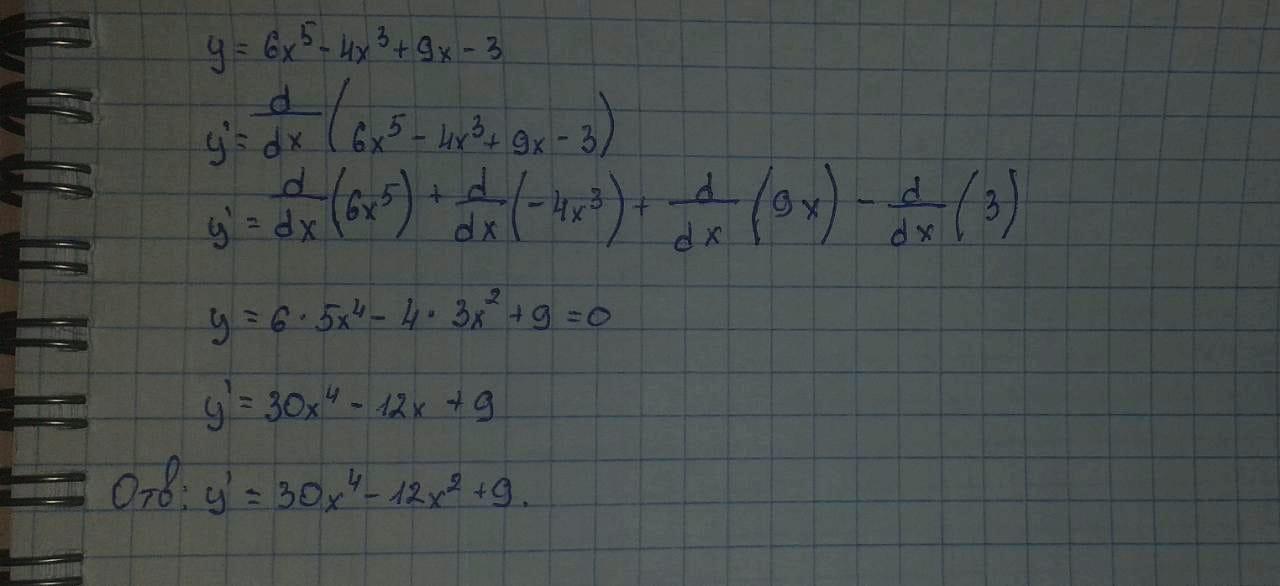 y = 6x⁵ - 4x³ + 9x - 3
y' = d/dx (6x⁵ - 4x³ + 9x - 3)
y' = d/dx (6x⁵) + d/dx (-4x³) + d/dx (9x) - d/dx (3)
y = 6 · 5x⁴ - 4 · 3x² + 9 = 0
y' = 30x⁴ - 12x + 9
Отв: y' = 30x⁴ - 12x² + 9.